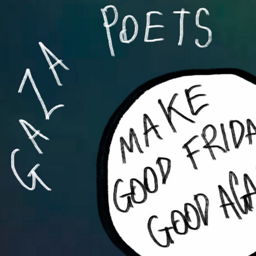 GAZA
POETS
MAKE
GOOD FRIDA
GOOD AGA